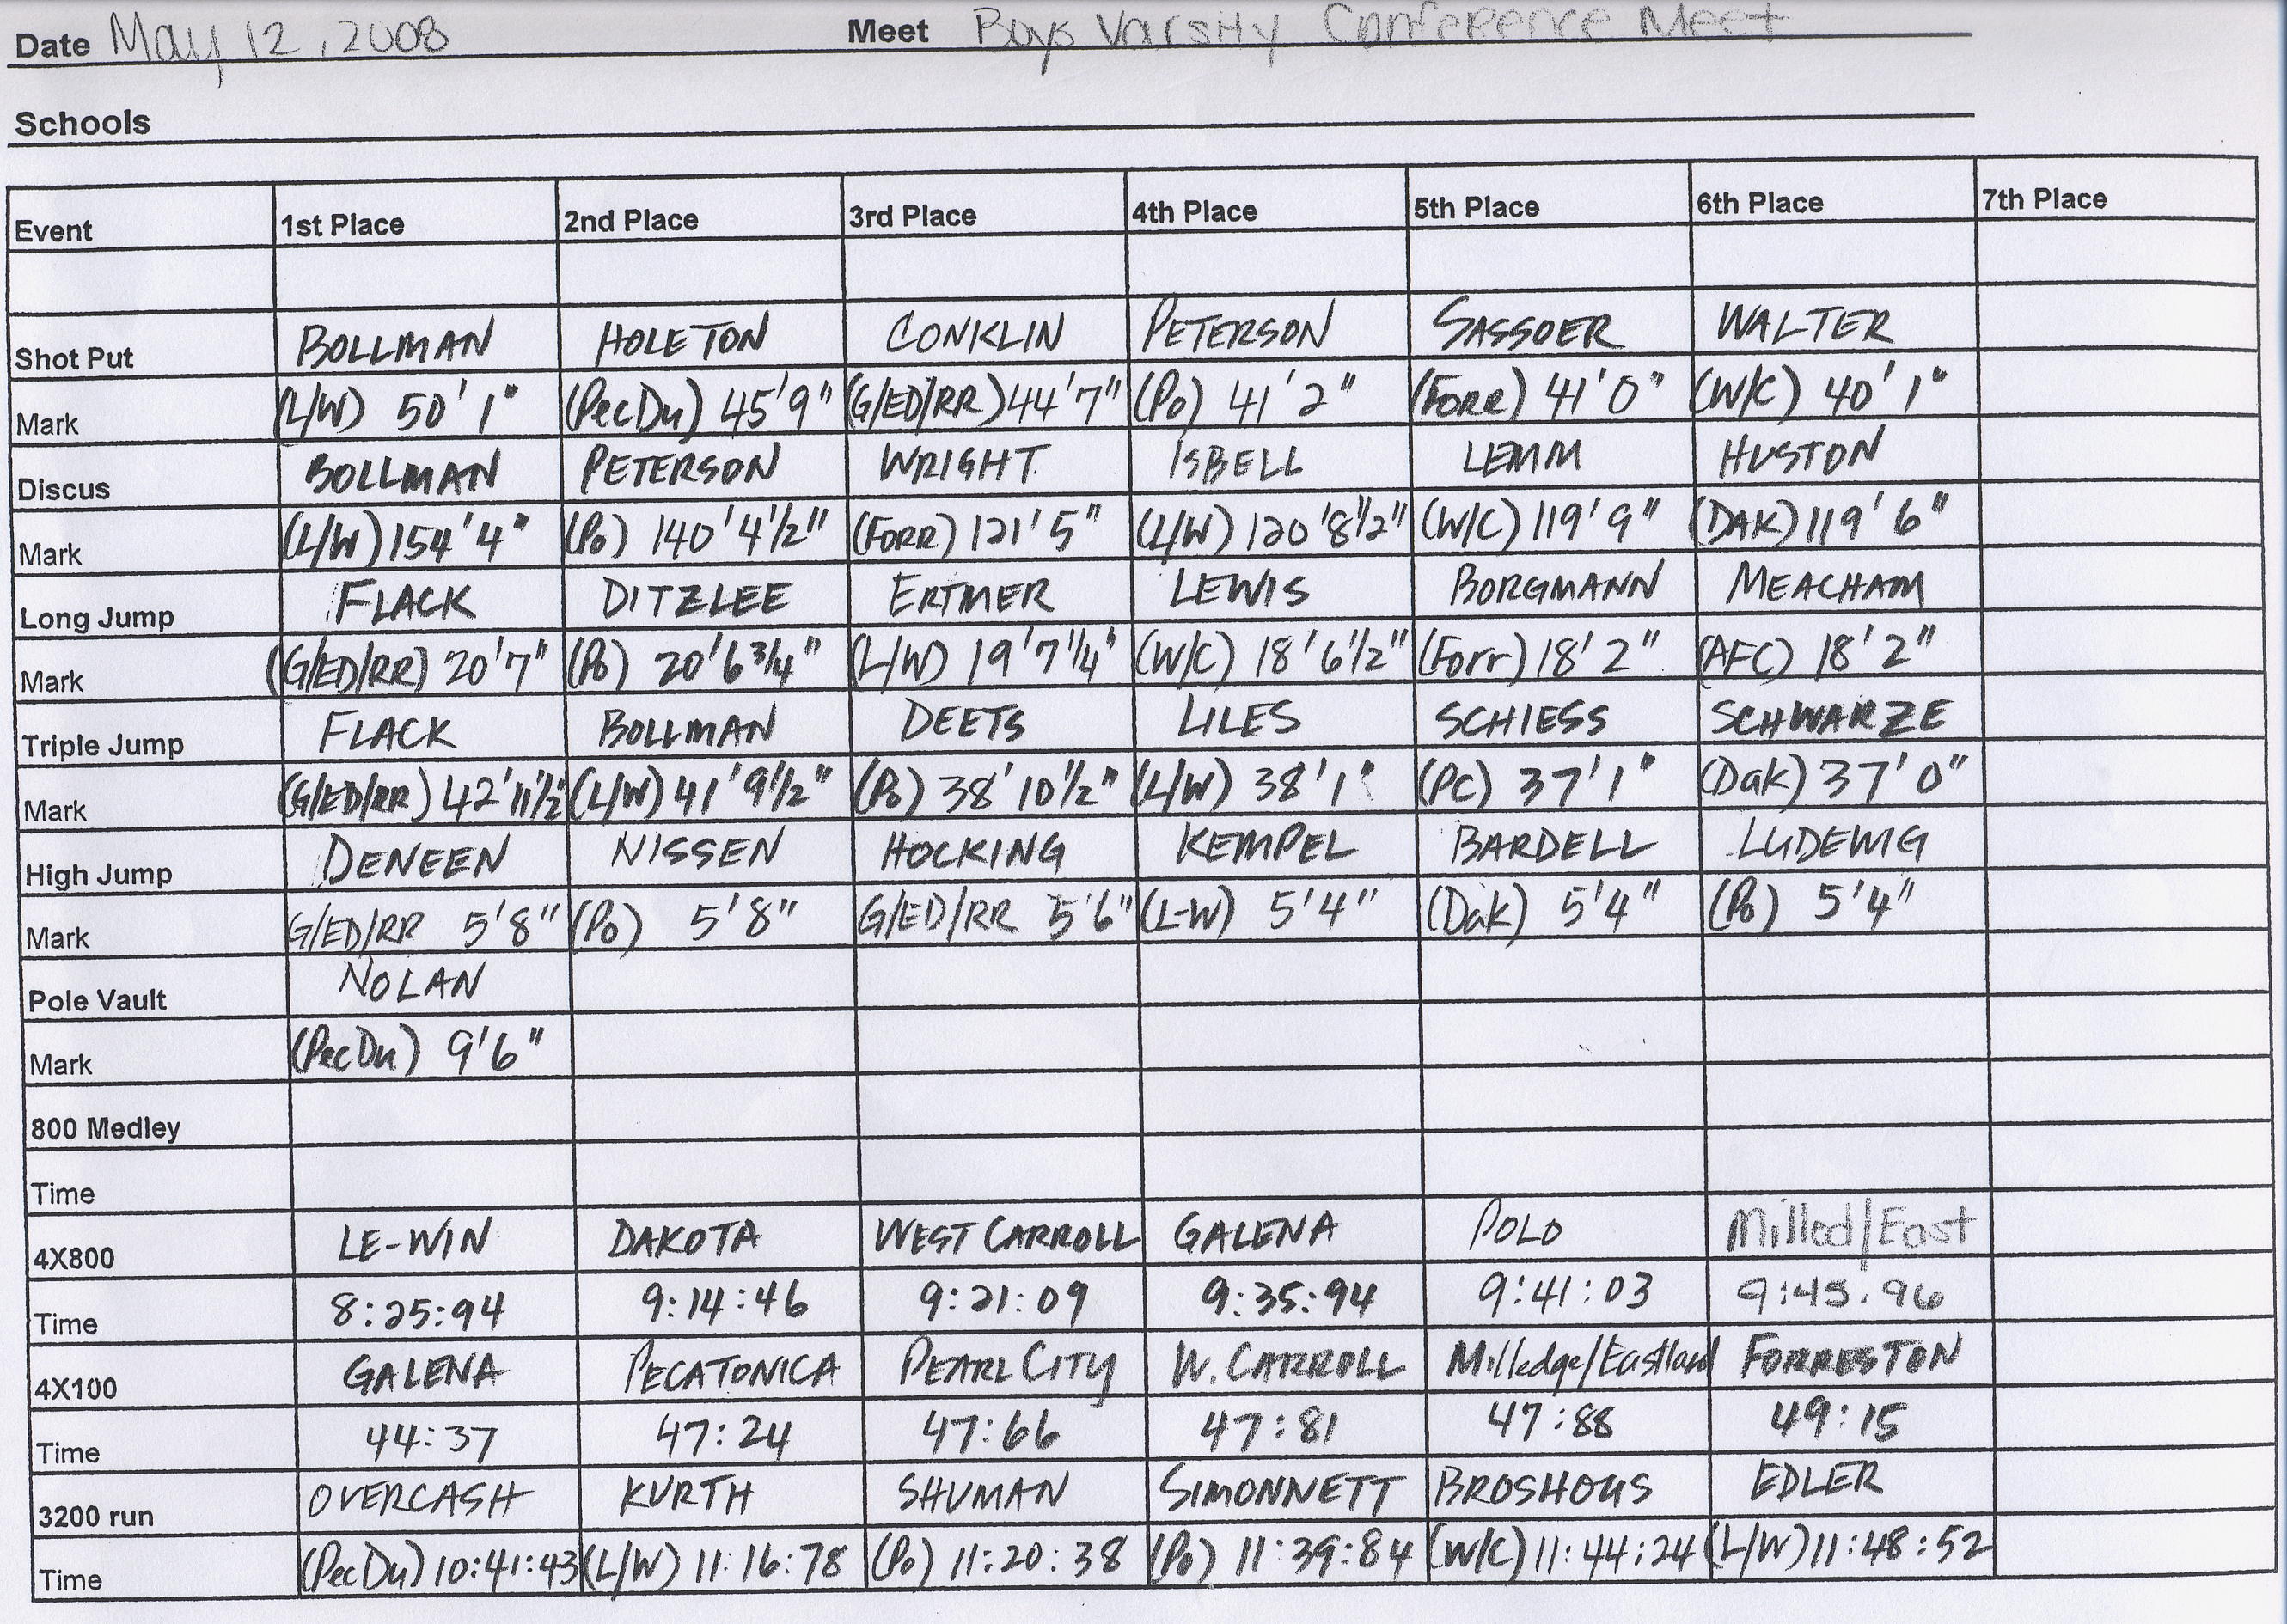 Date May 12, 2008 Meet Boys Varsity Conference Meet
Schools
Event 1st Place 2nd Place 3rd Place 4th Place 5th Place 6th Place 7th Place
Shot Put BOLLMAN HOLETON CONKLIN PETERSON SASSOER WALTER
Mark (L/W) 50'1" (PecDu) 45'9" (G/ED/RR) 44'7" (Po) 41'2" (FORR) 41'0" (W/C) 40'1"
Discus BOLLMAN PETERSON WRIGHT ISBELL LEMM HUSTON
Mark (L/W) 154'4" (Po) 140'4 1/2" (FORR) 121'5" (L/W) 120'8 1/2" (W/C) 119'9" (DAK) 119'6"
Long Jump FLACK DITZLEE ERTMER LEWIS BORGMANN MEACHAM
Mark (G/ED/RR) 20'7" (Po) 20'6 3/4" (L/W) 19'7 1/4" (W/C) 18'6 1/2" (Forr) 18'2" (AFC) 18'2"
Triple Jump FLACK BOLLMAN DEETS LILES SCHIESS SCHWARZE
Mark (G/ED/RR) 42'11 1/2" (L/W) 41'9 1/2" (Po) 38'10 1/2" (L/W) 38'1" (PC) 37'1" (Dak) 37'0"
High Jump DENEEN NISSEN HOCKING KEMPEL BARDELL LUDEWIG
Mark G/ED/RR 5'8" (Po) 5'8" G/ED/RR 5'6" (L-W) 5'4" (Dak) 5'4" (Po) 5'4"
Pole Vault NOLAN
Mark (PecDu) 9'6"
800 Medley
Time
4X800 LE-WIN DAKOTA WEST CARROLL GALENA POLO Milled/East
Time 8:25:94 9:14:46 9:21:09 9:35:94 9:41:03 9:45.96
4X100 GALENA PECATONICA PEARL CITY W. CARROLL Milledge/Eastland FORRESTON
Time 44:37 47:24 47:66 47:81 47:88 49:15
3200 run OVERCASH KURTH SHUMAN SIMONNETT BROSHOUS EDLER
Time (PecDu) 10:41:43 (L/W) 11:16:78 (Po) 11:20:38 (Po) 11:39:84 (W/C) 11:44:24 (L/W) 11:48:52